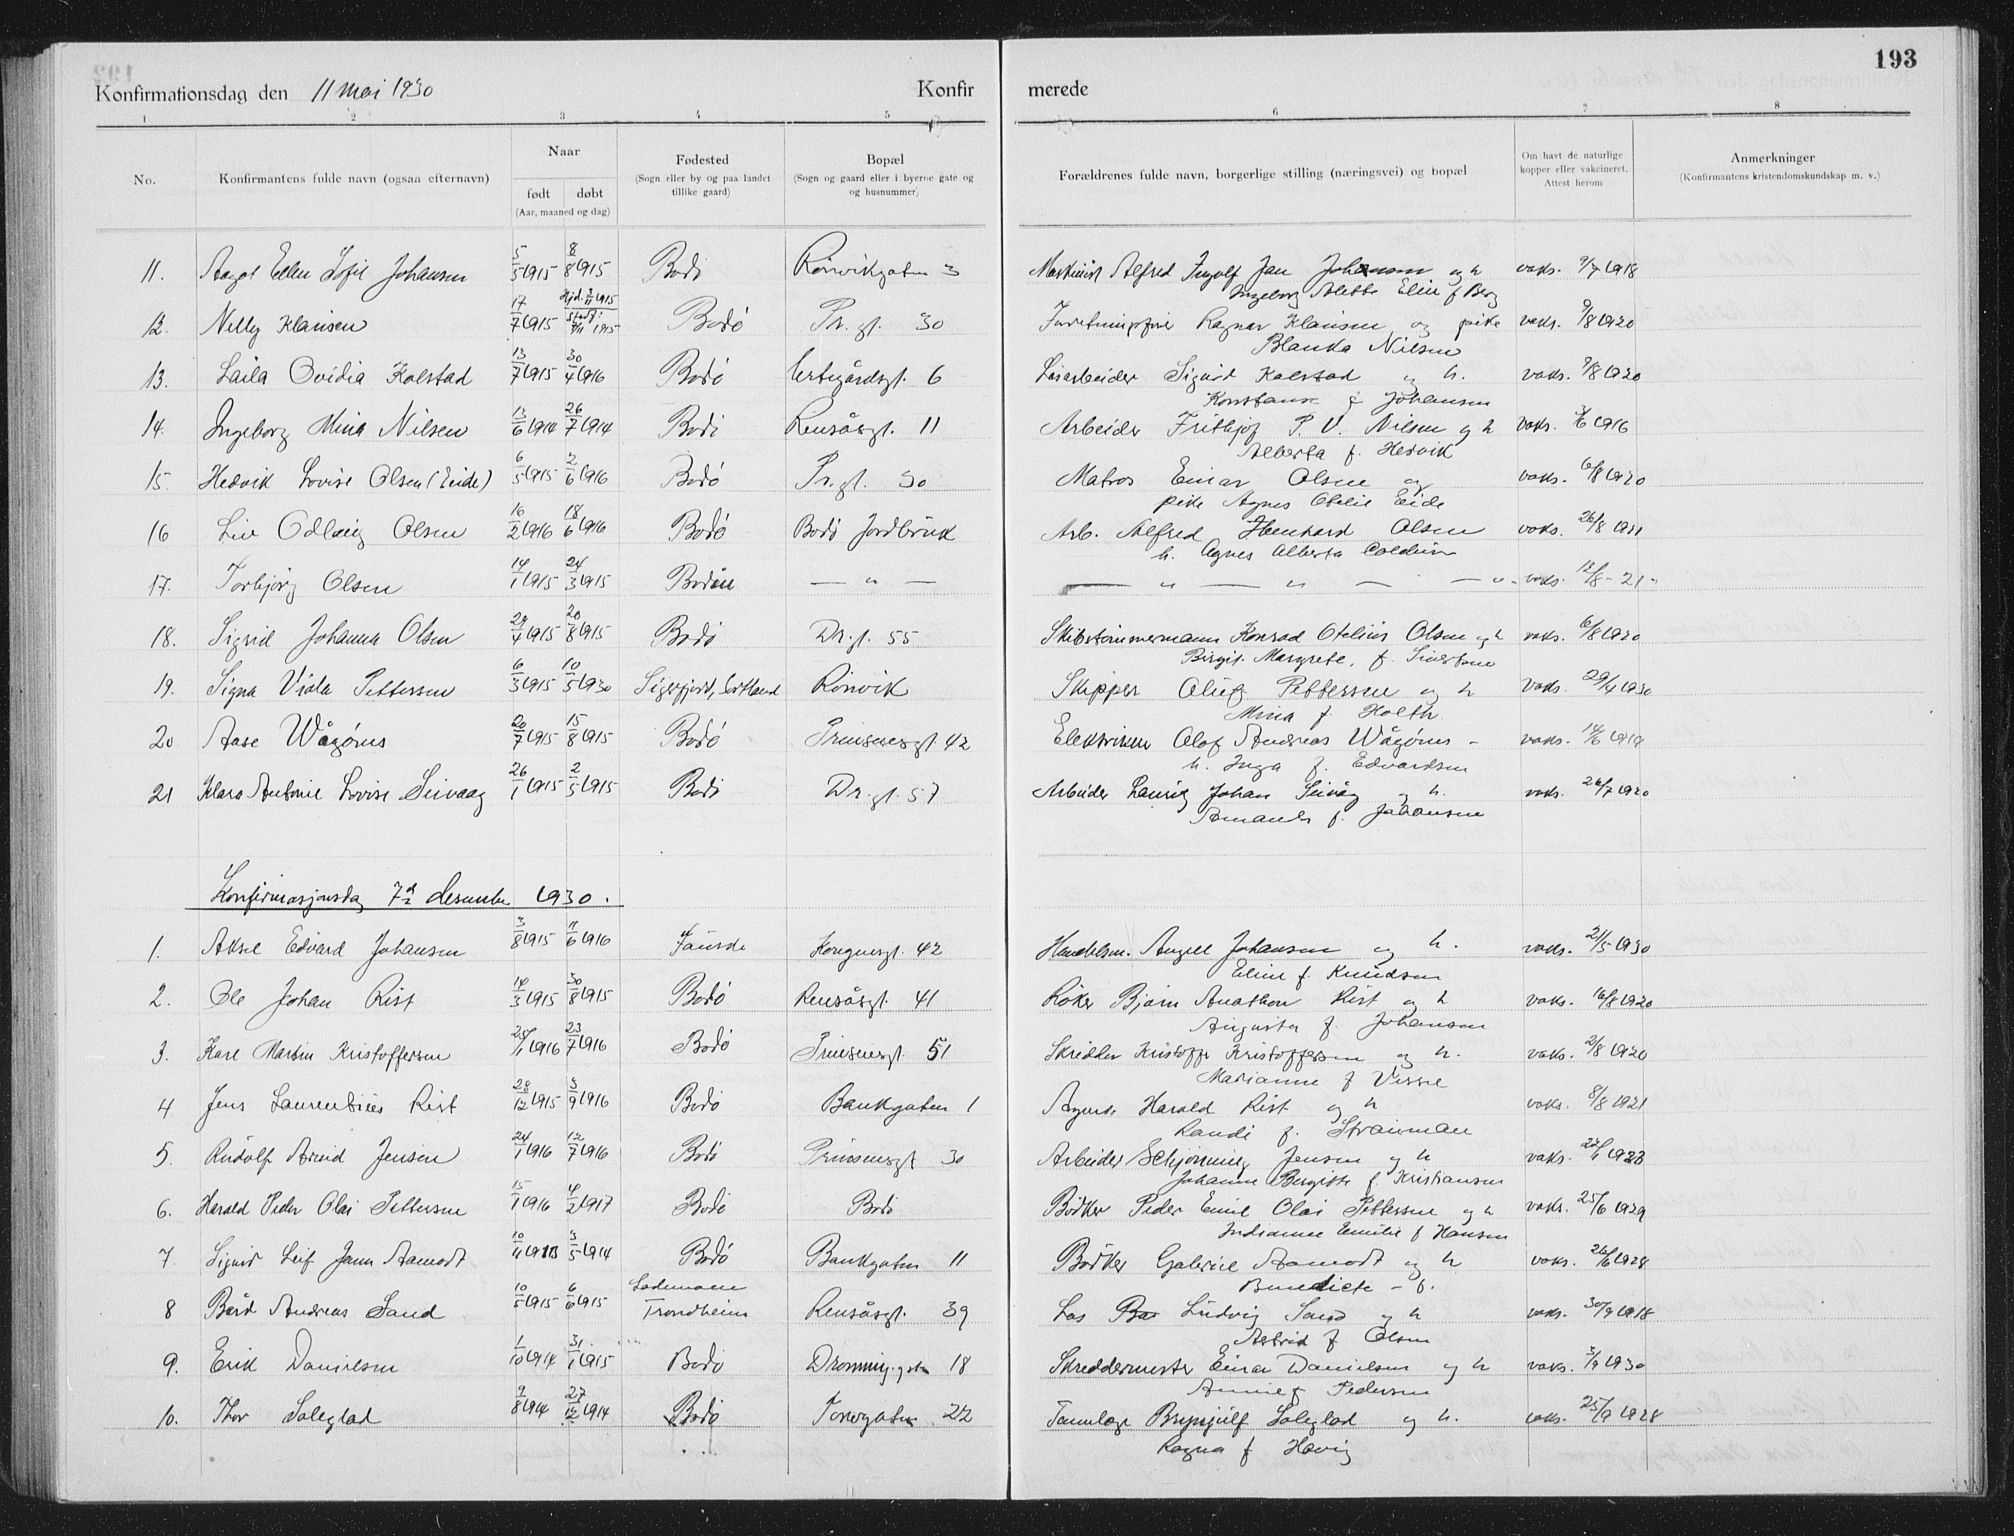 193
Konfirmationsdag den 11 mai 1930 Konfir merede
1 2 3 4 5 6 7 8
No. Konfirmantens fulde navn (ogsaa efternavn) Naar født døbt (Aar, maaned og dag) Fødested (Sogn eller by og paa landet tillike gaard) Bopæl (Sogn og gaard eller i byerne gate og og husnummer) Forældrenes fulde navn, borgerlige stilling (næringsvei) og bopæl Om havt de naturlige kopper eller vakcineret. Attest herom Anmerkninger (Konfirmantens kristendomskundskap m. v.)
11. Aagot Ellen Sofie Johansen 5/5 1915 8/8 1915 Bodø Rønvikgaten 3 Maskinist Alfred Ingolf Jan Johansen og h vaks. 9/7 1918
Ingeborg Alette Elin f Berg
12. Nelly Klausen 17/7 1915 Hjd. 1915 Stadf. 1915 Bodø Pr. gt. 30 Ragnar Klausen og pike vaks. 9/8 1920
Blanka Nilsen
13. Laila Ovidia Kolstad 13/7 1915 30/4 1916 Bodø 6 Løsarbeider Sigurd Kolstad og h. vaks. 9/8 1920
Konstanse f Johansen
14. Ingeborg Mina Nilsen 13/6 1914 26/7 1914 Bodø Rensåsgt. 11 Arbeider Frithjof P. V. Nilsen og h vaks. 1916
Alberta f. Hesvik
15. Hedvik Lovise Olsen (Eide) 6/5 1915 2/6 1916 Bodø Pr. gt. 30 Matros Einar Olsen og vaks. 6/8 1920
pike Agnes Otelie Eide
16 Liv Odlaug Olsen 16/2 1916 18/6 1916 Bodø Bodø Jordbruk Arb. Alfred Olsen vaks. 26/8 1921
h. Agnes Alberta
17. Torbjørg Olsen 14/1 1915 24/3 1915 Bodin — " — — " — " — — " - vaks. 12/8 - 21 -
18. Sigrid Johanna Olsen 29/4 1915 20/8 1915 Bodø Dr. gt. 55 Skibstømmermann Konrad Otelius Olsen og h vaks. 6/8 1920
Birgit Margrete, f. Sivertsen
19. Signa Viola Pettersen 6/3 1915 10/5 1930 Sigerfjord, Sortland Rønvik Skipper Oluf Pettersen og h vaks. 29/4 1930
Mina f. Holth
20 Aase Wågønes 20/7 1915 15/8 1915 Bodø Prinsensgt. 42 Elektriker Olof Andreas Wågønes - vaks. 14/6 1919
h. Inga f. Edvardsen
21 Klara Antonie Lovise Seivaag 26/1 1915 2/5 1915 Bodø Dr. gt. 57 Arbeider Lauritz Johan Seivåg og h. vaks. 26/7 1920
Amanda f. Johansen
Konfirmasjonsdag 7d desember 1930.
1. Aksel Edvard Johansen 3/8 1915 11/6 1916 Fauske Kongensgt. 42 Handelsm. Angell Johansen og h. vaks. 21/5 1930
Eline f. Knudsen
2. Ole Johan Rist 14/3 1915 30/8 1915 Bodø Rensåsgt. 41 Røker Bjarn Anathon Rist og h vaks. 16/8 1920
Augusta f. Johansen
3. Kare Martin Kristoffersen 25/1 1916 23/7 1916 Bodø Prinsensgt. 51 Skredder Kristoffer Kristoffersen og h. vaks. 2/8 1920
Marianne f
4 Jens Laurentius Rist 28/12 1915 3/9 1916 Bodø Bankgaten 1 Agent Harald Rist og h vaks. 8/8 1921
Randi f. Strauman
5. Rudolf Arvid Jensen 24/1 1916 12/7 1916 Bodø Prinsensgt 30 Arbeider Schjønning Jensen og h vaks. 1923
Johanne Bergitte f. Kristiansen
6. Harald Peder Olai Pettersen 15/1 1916 4/2 1917 Bodø Bodø Bødker Peder Emil Olai Pettersen og h vaks. 25/6 1929
Indianne Emilie f Hansen
7. Sigurd Leif Jann Aamodt 10/11 1913 3/5 1914 Bodø Bankgaten 11 Bødker Gabriel Aamodt og h vaks. 26/6 1928
Benedicte - f.
8 Bård Andreas Sand 10/5 1915 6/6 1915 Lademoen Trondheim Rensåsgt. 39 Los Ludvig Sand og h vaks. 30/9 1918
Astrid f Olsen
9. Erik Danielsen 1/10 1914 31/1 1915 Bodø Dronning. gate 18 Skreddermester Einar Danielsen og h vaks. 3/9 1930
Annie f Pedersen
10. Thor Soleglad 9/8 1914 27/12 1914 Bodø Torvgaten 22 Tannlæge Brynjulf Soleglad og h. vaks. 25/9 1928
Ragna f Høvig